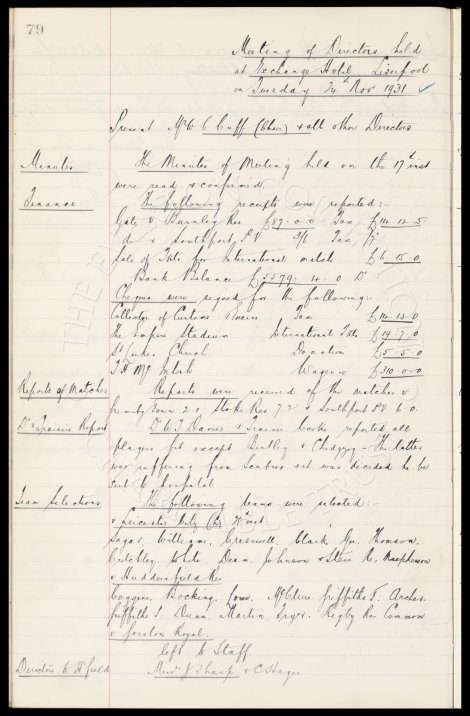 79
Meeting of Directors held
at Exchange Hotel Liverpool
on Tuesday 24th Nov 1931
Present Mr W C Cuff (Chair) & all other Directors
Minutes The Minutes of Meeting held on the 17th inst
were read & confirmed
Finance The following receipts were reported:-
Gate v Burnley Res £87-0-0 Tax £14-12-5
do v Southport S.V. Tax
Sale of Tkts for International match £6.15.0
Bank Balance £5579.4.0 Dr
Cheques were signed for the following:-
Collector of Customs & Excise Tax
The Empire Stadium International Tkts £19.7.0
St Lukes Church Donation £5.5.0
T H McIntosh Wages &c £310-0-0
Reports of Matches Reports were received of the matches v
Grimsby Town 2.1, Stoke Res 7.2 & Southport S.V. 6.0.
Dr & Trainers Report Dr W.J Davies & Trainer Cooke reported all
players fit except Bentley & Chedgzoy. The latter
was suffering from & it was decided he be
sent to hospital
Team Selections The following teams were selected:-
v Leicester City (h) 28th inst
Sagar, Williams, Cresswell, Clark, Gee, Thomson,
Critchley, White, Dean, Johnson & Stein Re. Macpherson
v Huddersfield Res
Coggins, Bocking, Lowe, McClure, Griffiths T. Archer
Griffiths P. Dunn, Martin, Fryer, Rigby Re. Common
v Garston Royal.
left to Staff
Directors to H'field Messrs J Sharp & C Hayes